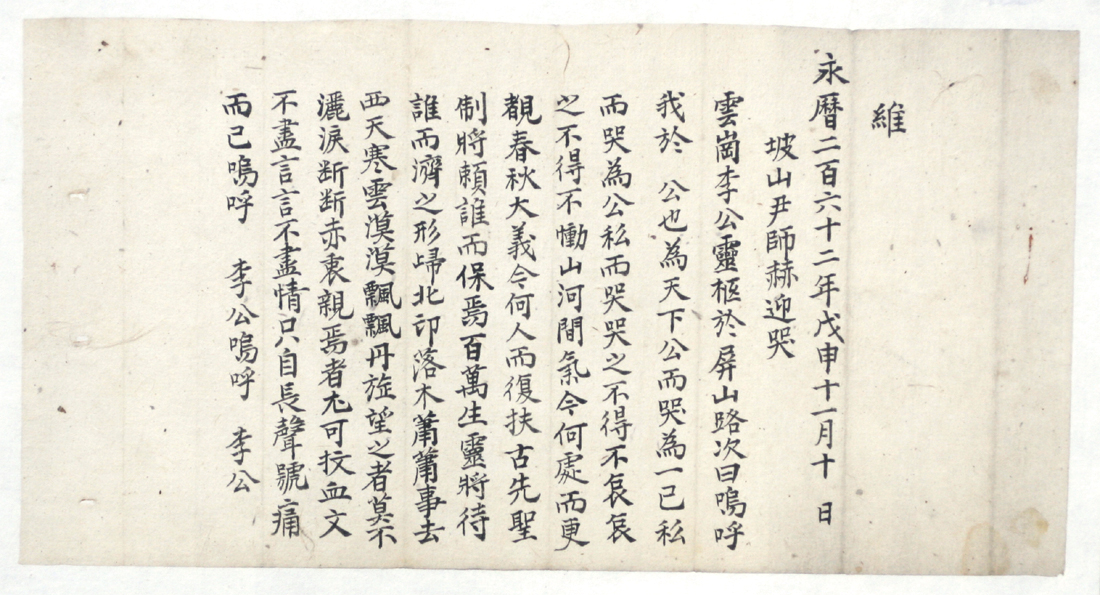 維
永曆二百六十二年戊申十一月十 日
坡山尹師赫迎哭
雲崗李公靈柩於屏山路次曰嗚呼
我於 公也為天下公而哭為一己私
而哭為公私而哭哭之不得不哀哀
之不得不慟山河間氣今何處而更
覩春秋大義今何人而復扶古先聖
制將賴誰而保焉百萬生靈將待
誰而濟之形歸北邙落木蕭蕭事去
西天寒雲漠漠飄飄丹旐望之者莫不
灑淚断断赤衷親焉者尤可抆血文
不盡言言不盡情只自長聲號痛
而已嗚呼 李公嗚呼 李公